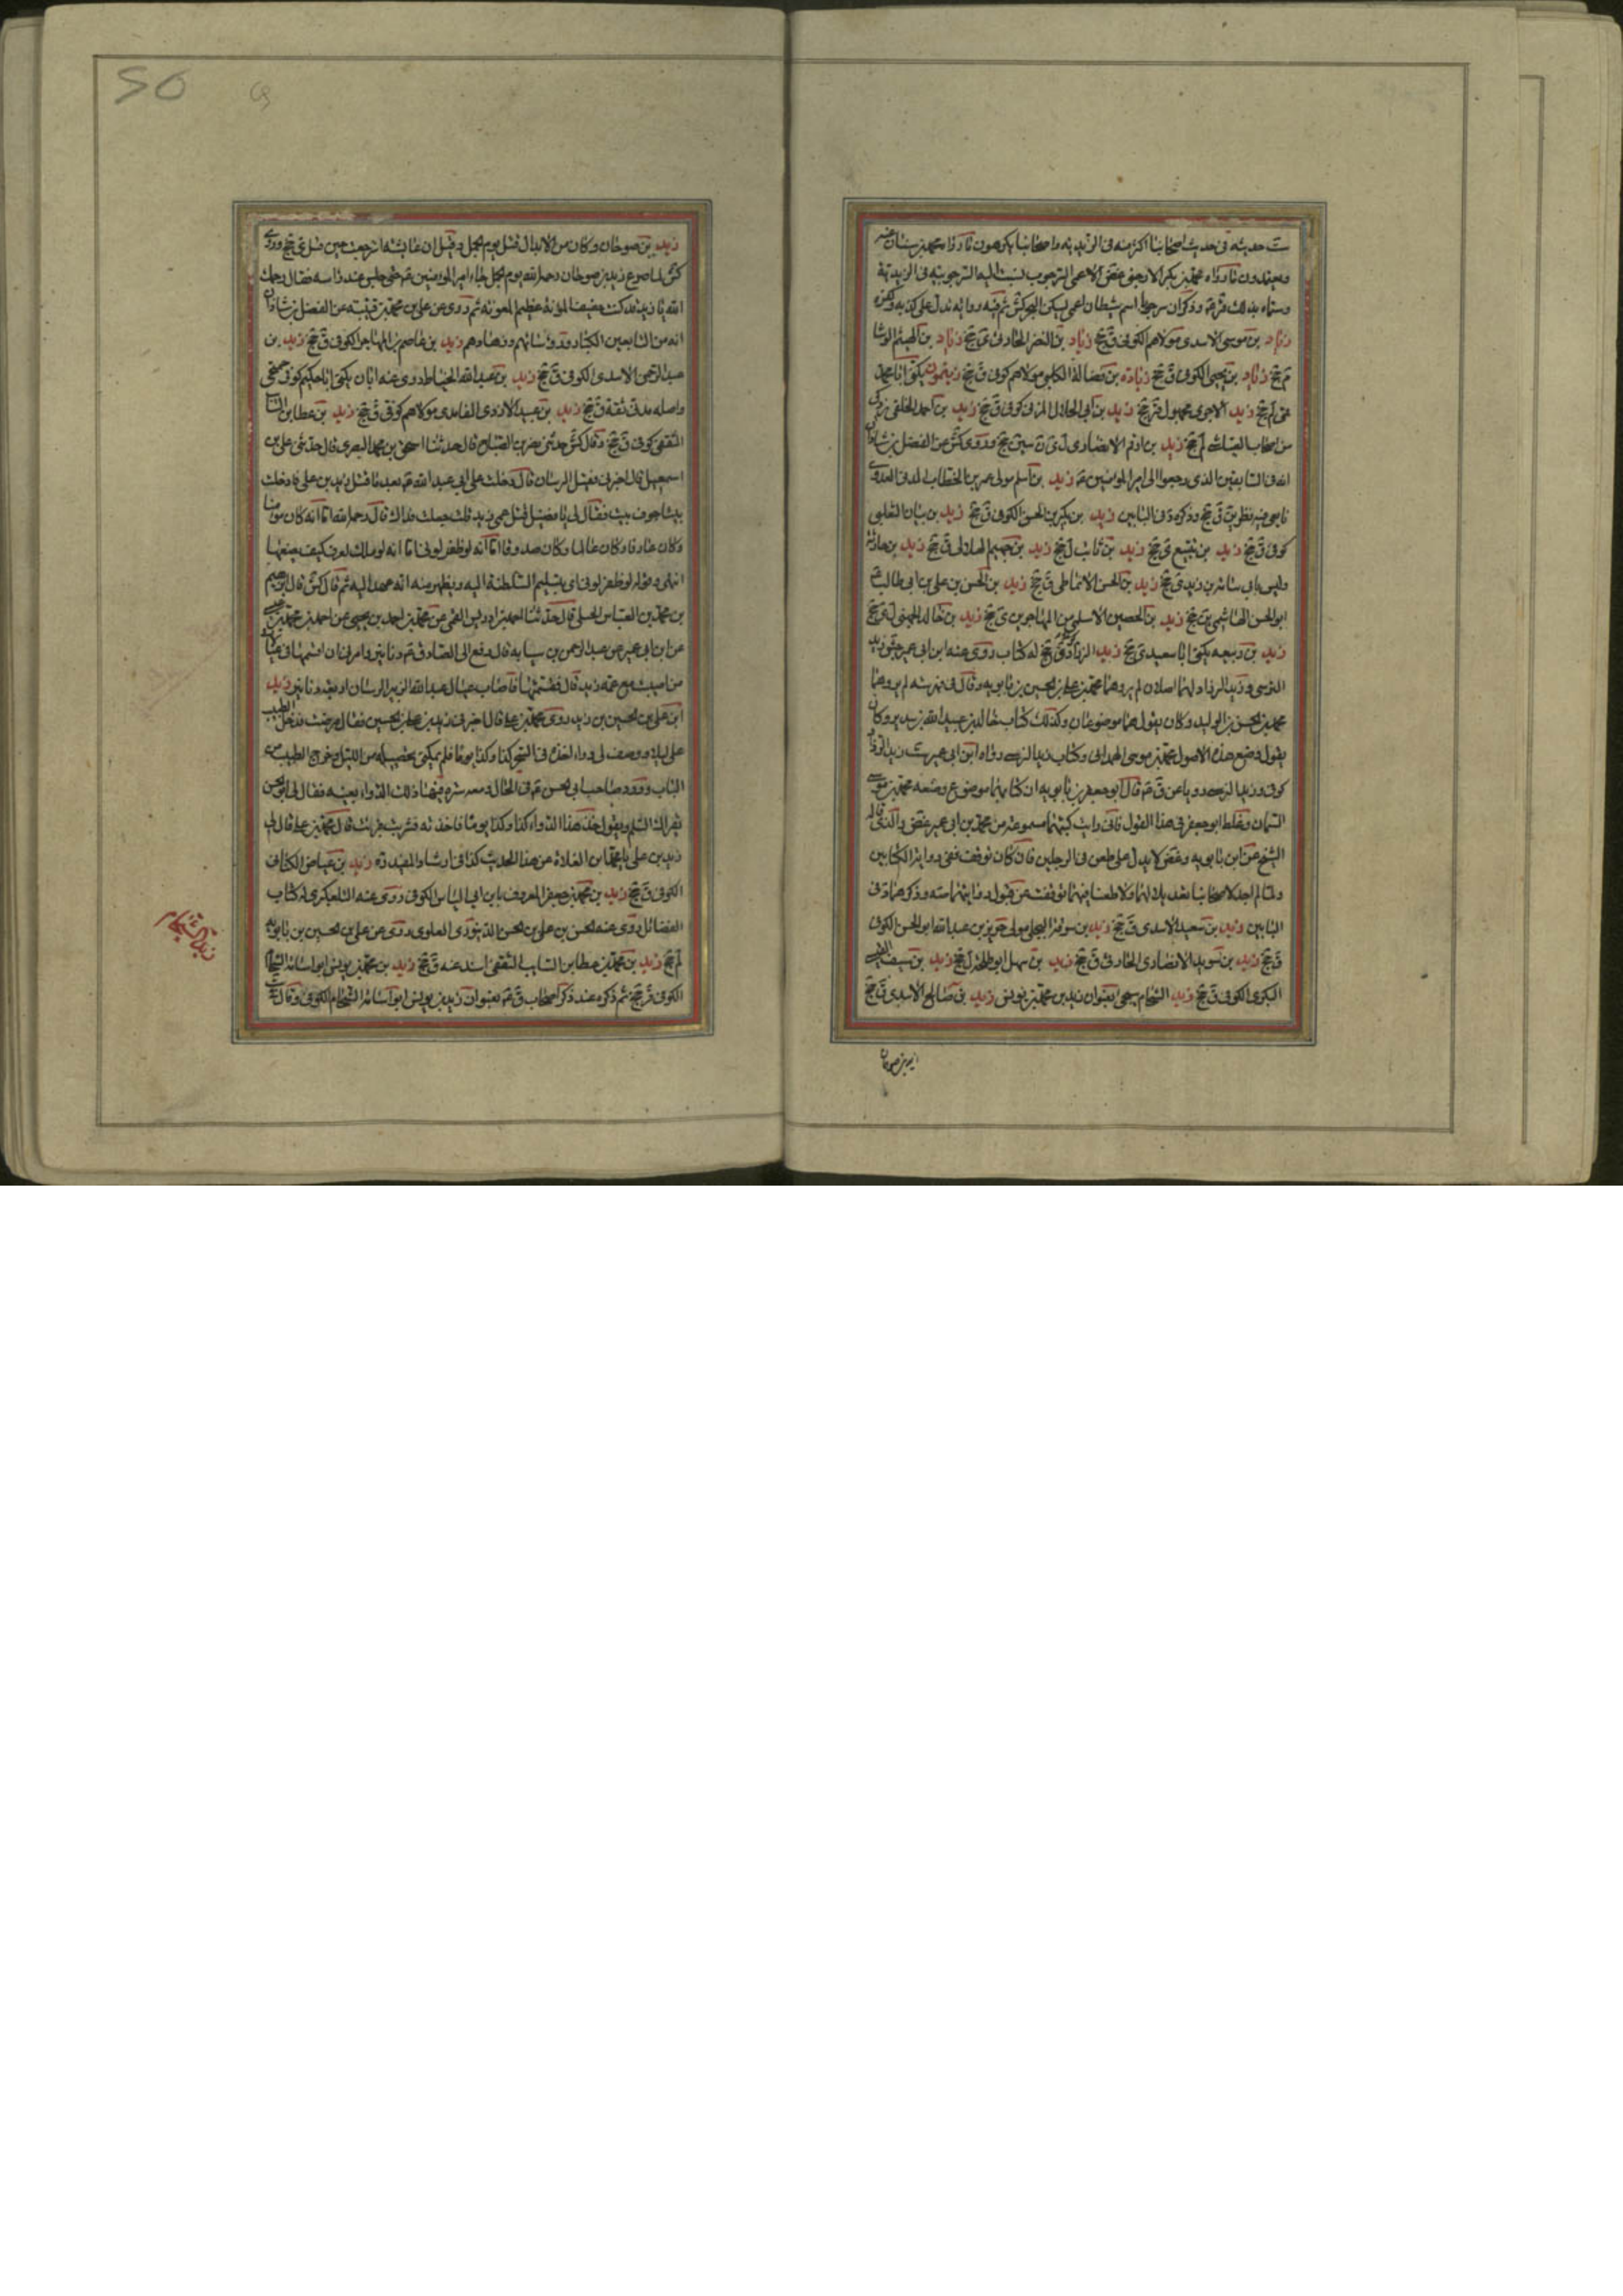 ست حديثه فى حديث اصحابنا اكثر منه فى الزيديه واصحابنا يكرهون ما رواه محمد بن سنان عنه
ويعتمدون ما رواه محمد بن بكر الارجنى
وسماه بذلك وذكر ان سرحوبا اسم شيطان اعمى يسكن البحر كش ثم فيه روايه تدل على كذبه وكفره
زياد بن موسى الاسدى مولاهم الكوفى ق جخ زياد بن النضر الحارثى ى جخ زياد بن الهيثم الوشا
م جخ زياد بن يحيى الكوفى ق جخ زيادة بن فضالة الكلبى مولاهم كوفى ق جخ زيتون يكنى ابا محمد
قمى لم جخ زيد الاجرى مجهول قر جخ زيد بن ابى الحلال المزنى كوفى ق جخ زيد بن احمد الخلقى
من اصحاب العياشى لم جخ زيد بن ارقم الانصارى ل ى ن سين جخ وروى كش عن الفضل بن شاذان
انه من السابقين الذى رجعوا الى امير المؤمنين ع زيد بن اسلم مولى عمر بن الخطاب المدنى العدوى
فيه نظر ين ق جخ وذكره د فى البابين زيد بن بكير بن الحسن الكوفى ق جخ زيد بن بنان التغلبى
كوفى ق جخ زيد بن تبيع ى جخ زيد بن ثابت ل جخ زيد بن جهيم الهلالى ق جخ زيد بن حارثة
وليس بابى اسامه بن زيد ى جخ زيد بن الحسن الانماطى ق جخ زيد بن الحسن بن على بن ابى طالب ع
ابو الحسن الهاشمى ين جخ زيد بن الحصين الاسلمى من المهاجرين ى جخ زيد بن خالد الجهنى ل ى جخ
زيد بن ربيعه يكنى ابا سعيد ى جخ زيد الزراد ق جخ له كتاب روى عنه ابن ابى عمير جش زيد
النرسى وزيد الزراد لهما اصلان لم يروهما محمد بن على بن الحسين بن بابويه وقال فى فهرسته لم يروهما
محمد بن الحسن بن الوليد وكان يقول هما موضوعان وكذلك كتاب خالد بن عبد الله بن سدير وكان
يقول وضع هذه الاصول محمد بن موسى الهمدانى وكتاب زيد النرسى رواه ابن ابى عمير ست زيد الزراد
كوفى وزيد النرسى رويا عن ق ع قال ابو جعفر بن بابويه ان كتابهما موضوع وضعه محمد بن موسى
السمان وغلط ابو جعفر فى هذا القول فانى رايت كتبهما مسموعة من محمد بن ابى عمير غض والذى قاله
الشيخ عن ابن بابويه وغض لا يدل على طعن فى الرجلين فان كان توقف ففى رواية الكتابين
ولما لم اجد لاصحابنا تعديلا لهما ولا طعنا فيهما توقفت عن قبول روايتهما صه وذكرهما د فى
البابين زيد بن سعيد الاسدى ق جخ زيد بن سوقة البجلى مولى جرير بن عبد الله ابو الحسن الكوفى
ق جخ زيد بن سويد الانصارى الحارثى ق جخ زيد بن سهل ابو طلحة ل جخ زيد بن سيف القيسى
البكرى الكوفى ق جخ زيد الشحام يجى بعنوان زيد بن محمد بن يونس زيد بن صالح الاسدى ق جخ
زيد بن صوحان وكان من الابدال قتل يوم الجمل وقيل ان عايشه استرجعت حين قتل ى جخ وروى
كش لما صرع زيد بن صوحان رحمه الله يوم الجمل جاء امير المؤمنين ع حتى جلس عند راسه فقال رحمك
الله يا زيد قد كنت خفيف المؤنة عظيم المعونة ثم روى عن على بن محمد بن قتيبه عن الفضل بن شاذان
انه من التابعين الكبار ورؤسائهم وزهادهم زيد بن عاصم بن المهاجر الكوفى ق جخ زيد بن
عبد الرحمن الاسدى الكوفى ق جخ زيد بن عبد الله الخياط روى عنه ابان يكنى ابا حكيم كوفى جمحى
واصله مدنى ثقة ق جخ زيد بن عبيد الازدى الغامدى مولاهم كوفى ق جخ زيد بن عطا بن السائب
الثقفى كوفى ق جخ وقال كش حدثنى نصر بن الصباح قال حدثنا اسحق بن محمد البصرى قال حدثنى على بن
اسمعيل قال اخبرنى فضيل الرسان قال دخلت على ابى عبد الله ع بعد ما قتل زيد بن على فادخلت
بيتا جوف بيت فقال لى يا فضيل قتل عمى زيد قلت جعلت فداك قال رحمه الله اما انه كان مؤمنا
وكان عارفا وكان عالما وكان صدوقا اما انه لو ظفر لوفى اما انه لو ملك لعرف كيف يضعها
انتهى وقوله لو ظفر لوفى اى بتسليم السلطنة اليه ويظهر منه انه عهد اليه ثم قال كش قال ابرهيم
بن محمد بن العباس الختلى قال حدثنا احمد بن ادريس القمى عن محمد بن احمد بن يحيى عن احمد بن محمد بن عيسى
عن ابن ابى عمير عن عبد الرحمن بن سيابه قال دفع الى الصادق ع دنانير وامرنى ان اقسمها فى عيالات
من اصيب مع عمه زيد قال فقسمتها فاصاب عيال عبد الله الزبير الرسان اربعه دنانير زيد
ابن على بن الحسين بن زيد روى محمد بن على قال اخبرنى زيد بن على بن الحسين فقال مرضت فدخل الطبيب
على ليلا ووصف لى دواء اخذه فى السحر كذا وكذا يوما فلم يمكنى تحصيله من الليل وخرج الطبيب من
الباب وورد صاحب ابى الحسن ع فى الحال ومعه صره فيها ذلك الدواء بعينه فقال لى ابو الحسن
يقرئك السلم ويقول خذ هذا الدواء كذا وكذا يوما فاخذته فشربت فبرئت قال محمد بن على قال لى
زيد بن على يا محمد اين الغلاة عن هذا الحديث كذا فى ارشاد المفيد ره زيد بن عياض الكنانى
الكوفى ق جخ زيد بن محمد بن جعفر المعروف بابن ابى الياس الكوفى روى عنه التلعكبرى له كتاب
الفضائل روى عنه الحسن بن على بن الحسن الدينورى العلوى روى عن على بن الحسين بن بابويه
لم جخ زيد بن محمد بن عطا بن السايب الثقفى اسند عنه ق جخ زيد بن محمد بن يونس ابو اسامة الشحام
الكوفى قر جخ ثم ذكره عند ذكر اصحاب ق ع بعنوان زيد بن يونس ابو اسامة الشحام الكوفى وقال
زيد بن صوحان
زيد الشحام